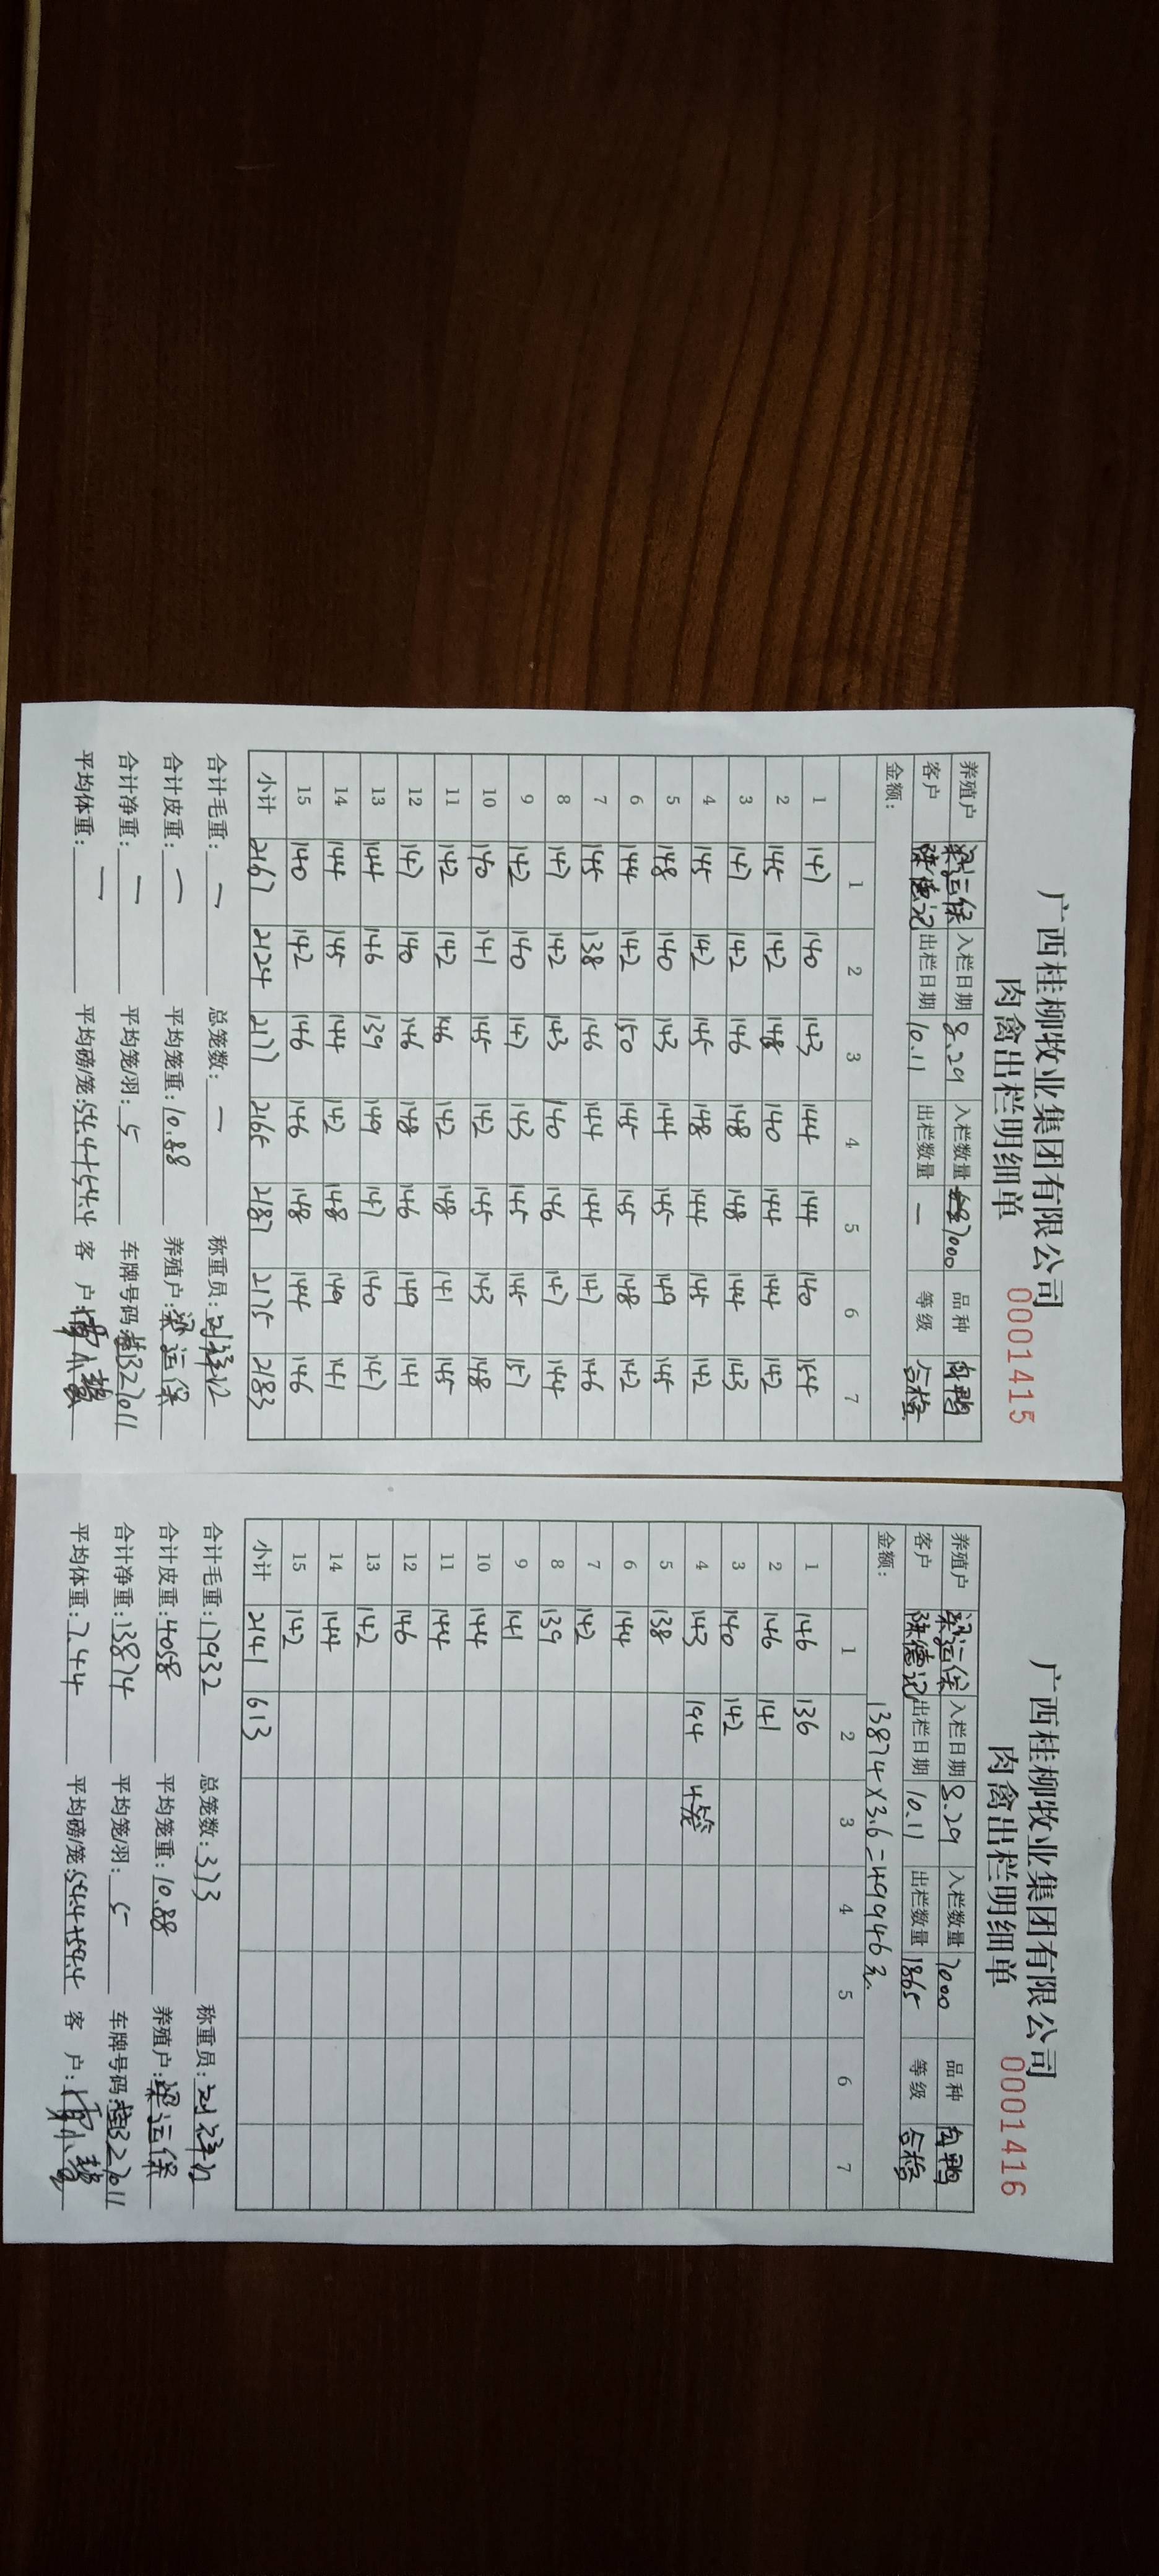 广西桂柳牧业集团有限公司
肉禽出栏明细单 0001415
养殖户 梁运保 入栏日期 8.29 入栏数量 7000 品种 肉鸭
客户 陈德记 出栏日期 10.11 出栏数量 — 等级 合格
金额：
1 2 3 4 5 6 7
1 147 140 143 144 144 140 154
2 145 142 148 140 144 144 142
3 147 142 146 148 148 144 143
4 145 142 145 148 144 145 142
5 148 140 143 144 145 149 145
6 144 142 150 145 145 148 142
7 145 138 146 144 144 147 146
8 147 142 143 140 146 147 144
9 142 140 147 143 145 145 157
10 140 141 145 142 145 143 148
11 142 142 146 142 148 141 145
12 147 140 146 148 146 149 141
13 144 146 139 149 147 140 147
14 144 145 144 142 148 149 141
15 140 142 146 146 148 144 146
小计 2167 2124 2177 2165 2187 2175 2183
合计毛重：— 总笼数：— 称重员：
合计皮重：— 平均笼重：10.88 养殖户：梁运保
合计净重：— 平均笼/羽：5 车牌号码：桂B27011
平均体重：— 平均磅/笼：54.4+54.4 客 户：
广西桂柳牧业集团有限公司
肉禽出栏明细单 0001416
养殖户 梁运保 入栏日期 8.29 入栏数量 7000 品种 肉鸭
客户 陈德记 出栏日期 10.11 出栏数量 1865 等级 合格
金额： 13874×3.6=49946元
1 2 3 4 5 6 7
1 146 136
2 146 141
3 140 142
4 143 194 4笼
5 138
6 144
7 142
8 139
9 141
10 144
11 144
12 146
13 142
14 144
15 142
小计 2141 613
合计毛重：17932 总笼数：373 称重员：
合计皮重：4058 平均笼重：10.88 养殖户：梁运保
合计净重：13874 平均笼/羽：5 车牌号码：桂B27011
平均体重：7.44 平均磅/笼：54.4+54.4 客 户：